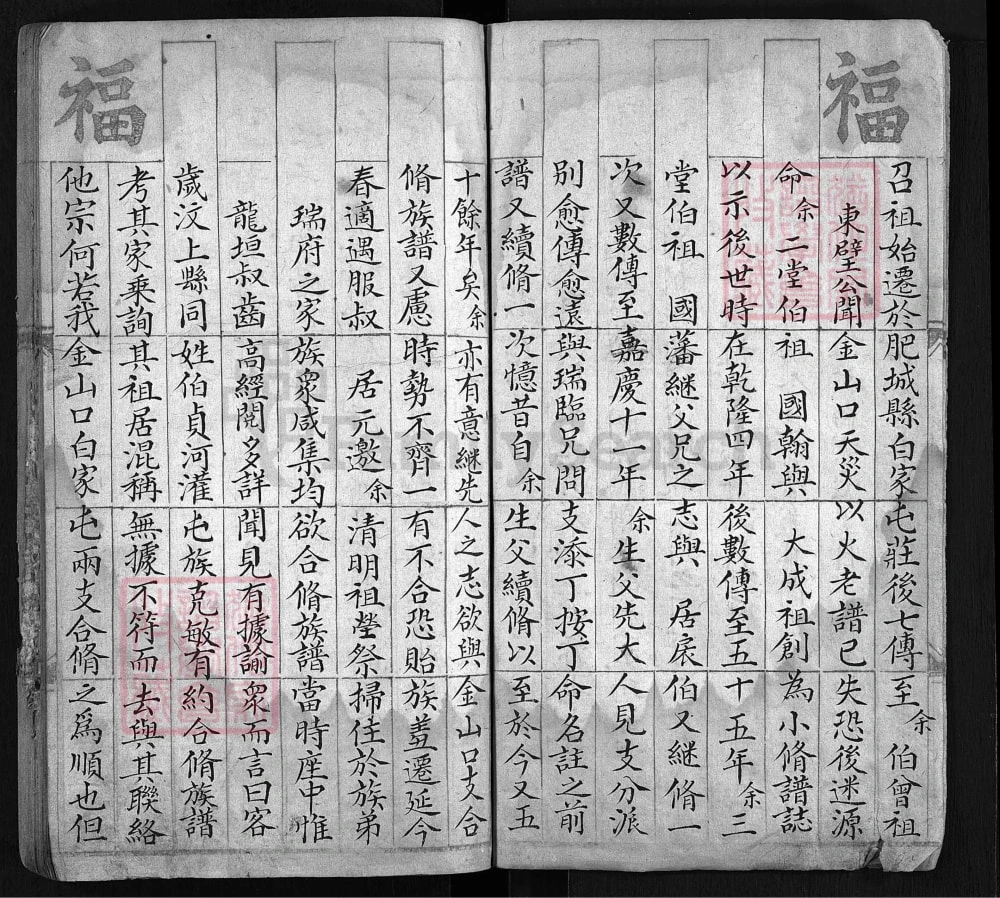 福
召祖始遷於肥城縣白家屯莊後七傳至余伯曾祖
東壁公聞金山口天災以火老譜已失恐後迷源
命余二堂伯祖 國翰與 大成祖創為小脩譜誌
以示後世時在乾隆四年後數傳至五十五年余三
堂伯祖 國藩繼父兄之志與 居扆伯又繼脩一
次又數傳至嘉慶十一年余生父先大人見支分派
別愈傳愈遠與瑞臨兄問支添丁按丁命名註之前
譜又續脩一次憶昔自余生父續脩以至於今又五
福
十餘年矣余亦有意繼先人之志欲與金山口支合
脩族譜又慮時勢不齊一有不合恐貽族羞遷延今
春適遇服叔 居元邀余清明祖塋祭掃住於族弟
瑞府之家族眾咸集均欲合脩族譜當時座中惟
龍垣叔齒高經閱多詳聞見有據諭眾而言曰客
歲汶上縣同姓伯貞河灌屯族克敏有約合脩族譜
考其家乘詢其祖居混稱無據不符而去與其聯絡
他宗何若我金山口白家屯兩支合脩之為順也但